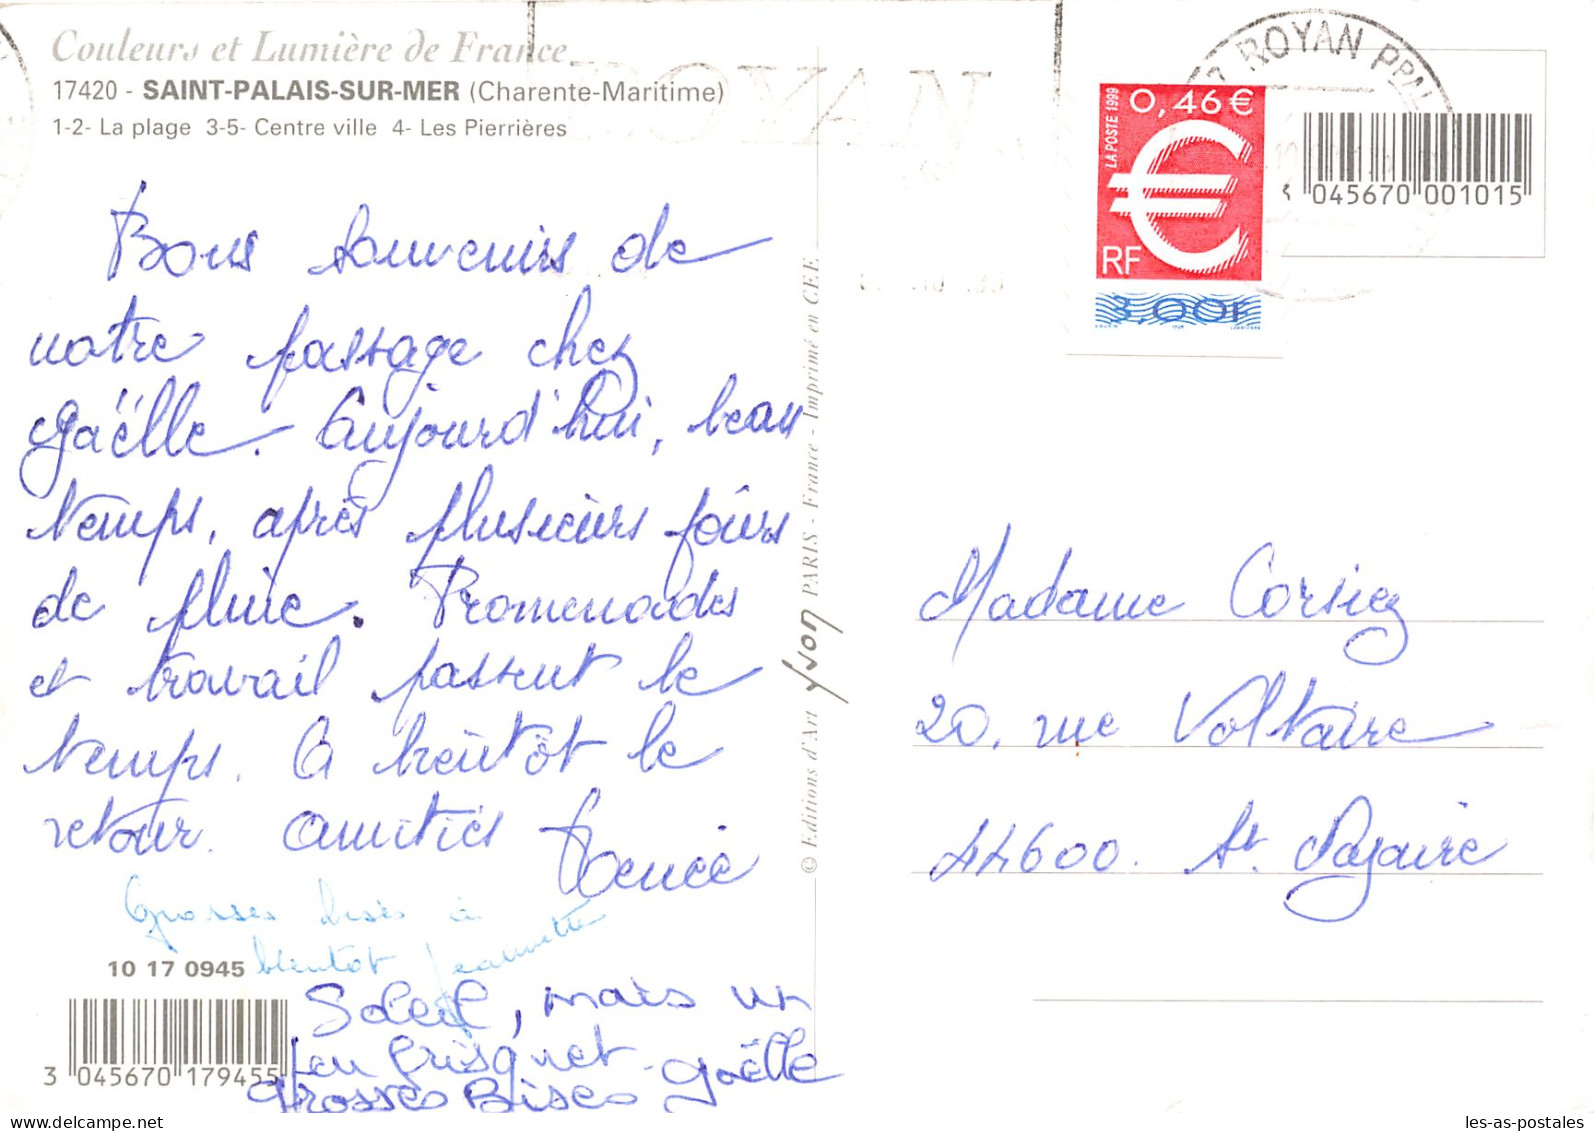 Couleurs et Lumière de France
17420 - SAINT-PALAIS-SUR-MER (Charente-Maritime)
1-2- La plage 3-5- Centre ville 4- Les Pierrières
Bons souvenirs de
notre passage chez
Gaëlle. Aujourd'hui, beau
temps, après plusieurs jours
de pluie. Promenades
et travail passent le
temps. A bientôt le
retour. Amitiés Renée
Grosses bises à
bientôt Jeannette
Soleil, mais un
peu frisquet. Gaëlle
Grosses Bises
10 17 0945
3 045670 179455
© Editions d'Art yvon PARIS - France - Imprimé en CEE
ROYAN
ROYAN PPAL
0,46 €
LA POSTE 1999
RF
3,00F
045670 001015
Madame Corsiez
20, rue Voltaire
44600. St. Nazaire
les-as-postales